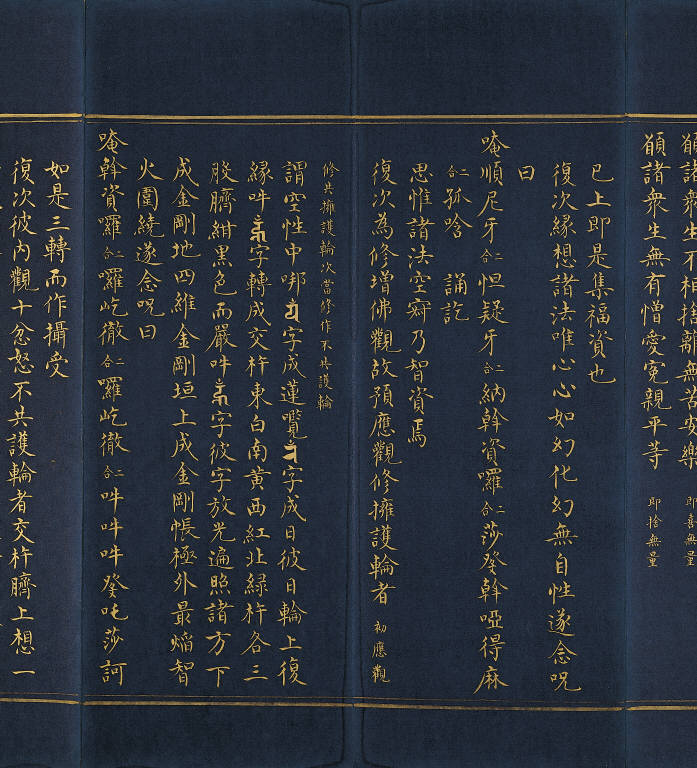 願諸眾生不相捨離無苦安樂 即喜無量
願諸眾生無有憎愛冤親平等 即捨無量
已上即是集福資也
復次緣想諸法唯心心如幻化幻無自性遂念呪
曰
唵順尼牙二合怛疑牙二合納斡資囉二合莎癹斡啞得麻
二合孤唅 誦訖
思惟諸法空寂乃智資焉
復次為修增佛觀故預應觀修擁護輪者 初應觀
修共擁護輪次當修作不共護輪
謂空性中哪字成蓮囕字成日彼日輪上復
緣吽字轉成交杵東白南黃西紅北綠杵各三
股臍紺黑色而嚴吽字彼字放光遍照諸方下
成金剛地四維金剛垣上成金剛帳極外最焰智
火圍繞遂念呪曰
唵斡資囉二合囉屹徹二合囉屹徹二合吽吽吽癹吒莎訶
如是三轉而作攝受
復次彼內觀十忿怒不共護輪者交杵臍上想一